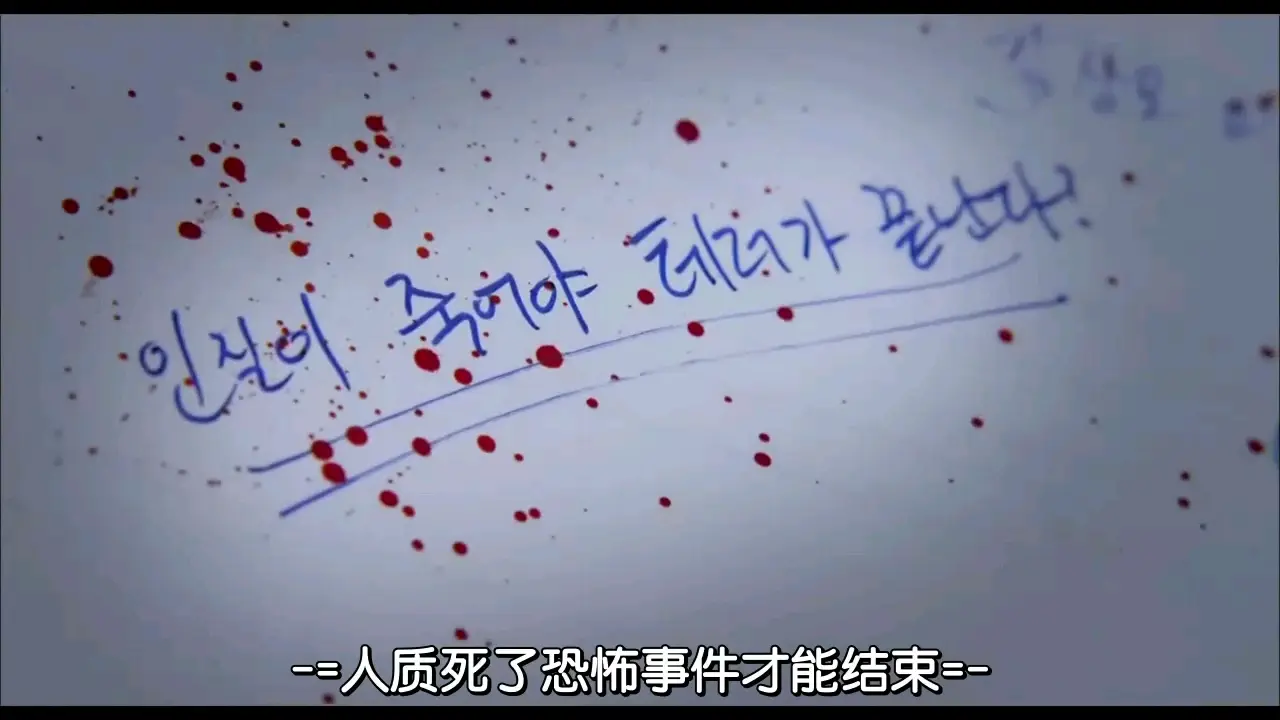 인질이 죽어야 테러가 끝난다?
-=人质死了恐怖事件才能结束=-